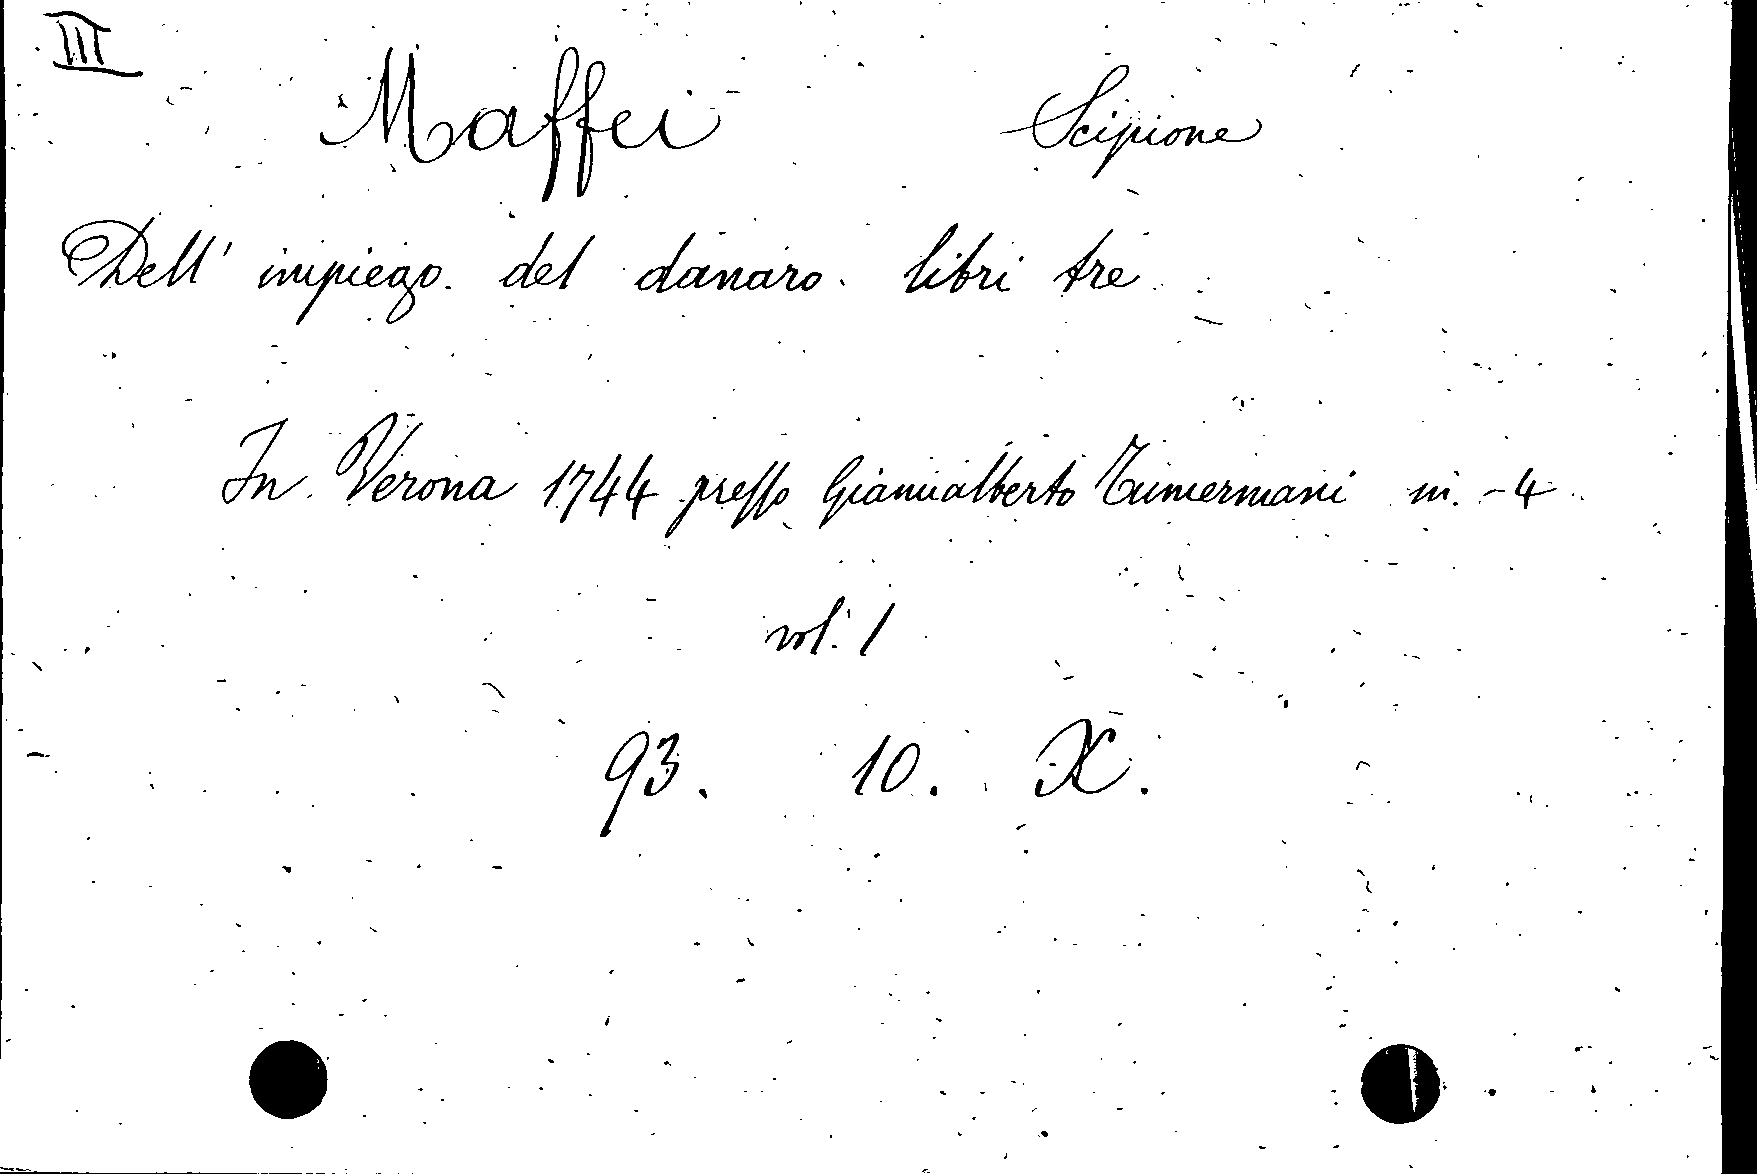 III
Maffei Scipione
Dell' impiego del danaro libri tre
In Verona 1744 presso Giannalberto Tumermani in-4
vol. 1
93. 10. X.